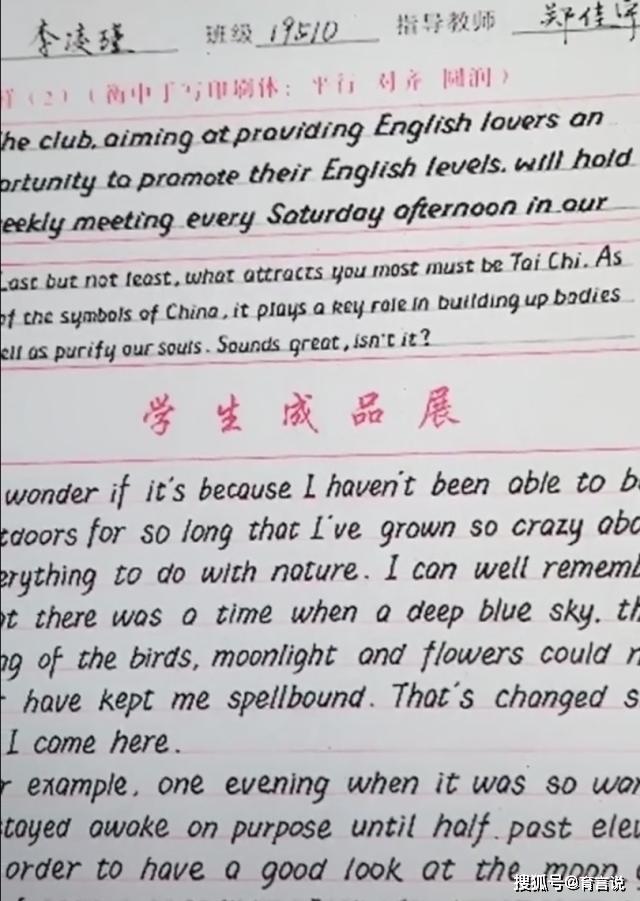 李凌瑾 班级 19510 指导教师 郑佳
样(2)(衡中手写印刷体: 平行 对齐 圆润)
he club, aiming at providing English lovers an
ortunity to promote their English levels. will hold
eekly meeting every Saturday afternoon in our
Last but not least, what attracts you most must be Tai Chi. As
of the symbols of China, it plays a key role in building up bodies
ell as purify our souls. Sounds great, isn't it?
学生成品展
wonder if it's because I haven't been able to b
tdoors for so long that I've grown so crazy abo
erything to do with nature. I can well rememb
t there was a time when a deep blue sky. th
ng of the birds, moonlight and flowers could n
have kept me spellbound. That's changed s
I come here.
r example, one evening when it was so war
tayed awake on purpose until half past elev
order to have a good look at the moon
搜狐号@育言说